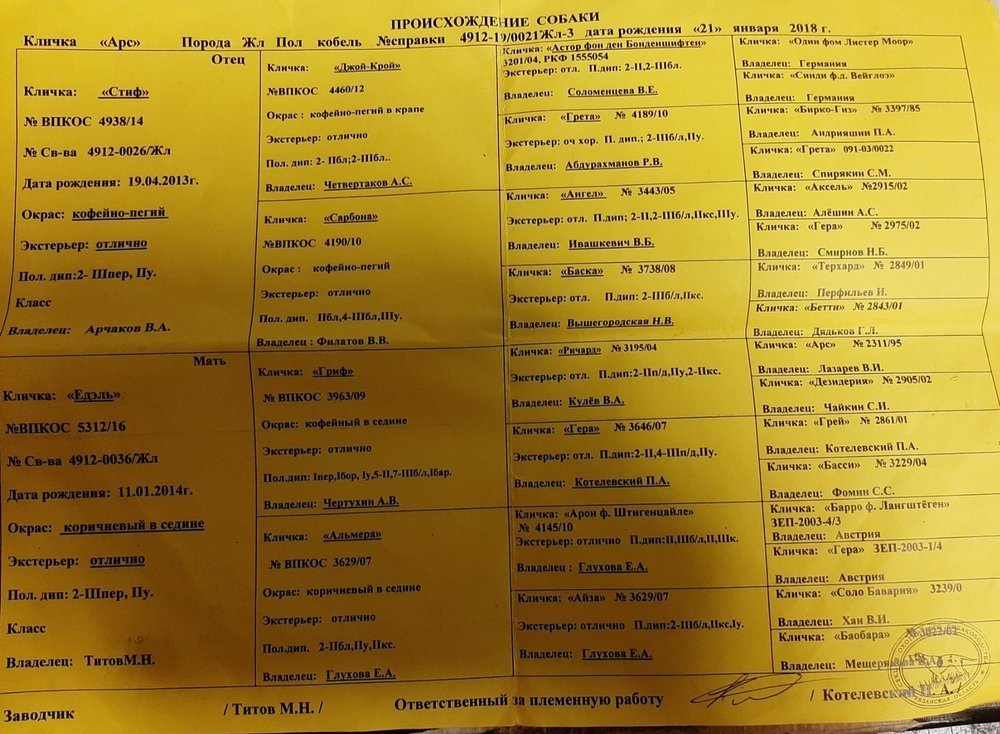 ПРОИСХОЖДЕНИЕ СОБАКИ
Кличка «Арс» Порода Жл Пол кобель №справки 4912-19/0021Жл-3 дата рождения «21» января 2018 г.
Отец
Кличка: «Стиф»
№ ВПКОС 4938/14
№ Св-ва 4912-0026/Жл
Дата рождения: 19.04.2013г.
Окрас: кофейно-пегий
Экстерьер: отлично
Пол. дип:2- IIIпер, IIу.
Класс
Владелец: Арчаков В.А.
Мать
Кличка: «Едэль»
№ВПКОС 5312/16
№ Св-ва 4912-0036/Жл
Дата рождения: 11.01.2014г.
Окрас: коричневый в седине
Экстерьер: отлично
Пол. дип: 2-IIIпер, IIу.
Класс
Владелец: ТитовМ.Н.
Кличка: «Джой-Крой»
№ВПКОС 4460/12
Окрас : кофейно-пегий в крапе
Экстерьер: отлично
Пол. дип: 2- IIбл;2-IIIбл..
Владелец: Четвертаков А.С.
Кличка: «Сарбона»
№ВПКОС 4190/10
Окрас : кофейно-пегий
Экстерьер: отлично
Пол. дип. IIбл,4-IIIбл,IIIу.
Владелец : Филатов В.В.
Кличка: «Гриф»
№ ВПКОС 3963/09
Окрас: кофейный в седине
Экстерьер: отлично
Пол.дип: Iпер,Iбор, Iу,5-II,7-IIIб/л,Iбар.
Владелец: Чертухин А.В.
Кличка: «Альмера»
№ ВПКОС 3629/07
Окрас: коричневый в седине
Экстерьер: отлично
Пол.дип. 2-IIбл,IIу,IIкс.
Владелец: Глухова Е.А.
Кличка: «Астор фон ден Бонденшифтен»
3201/04, РКФ 1555054
Экстерьер: отл. П.дип: 2-II,2-IIIбл.
Владелец: Соломенцева В.Е.
Кличка: «Грета» № 4189/10
Экстерьер: оч хор. П. дип.; 2-IIIб/л,IIу.
Владелец: Абдурахманов Р.В.
Кличка: «Ангел» № 3443/05
Экстерьер: отл. П.дип; 2-II,2-IIIб/л,IIкс,IIу.
Владелец: Ивашкевич В.Б.
Кличка: «Баска» № 3738/08
Экстерьер: отл. П.дип: 2-IIIб/л,IIкс.
Владелец: Вышегородская Н.В.
Кличка: «Ричард» № 3195/04
Экстерьер: отл. П.дип:2-IIп/д,IIу,2-IIкс.
Владелец: Кулёв В.А.
Кличка: «Гера» № 3646/07
Экстерьер: отл. П.дип:2-II,4-IIIп/д,IIу.
Владелец: Котелевский П.А.
Кличка: «Арон ф. Штигенцайле»
№ 4145/10
Экстерьер: отлично П.дип:II,IIIб/л,II,IIк.
Владелец : Глухова Е.А.
Кличка: «Айза» № 3629/07
Экстерьер: отлично П.дип:2-IIIб/л,IIкс,Iу.
Владелец: Глухова Е.А.
Кличка: «Один фом Листер Моор»
Владелец: Германия
Кличка: «Синди ф.д. Вейглоз»
Владелец: Германия
Кличка: «Бирко-Гиз» № 3397/85
Владелец: Андрияшин П.А.
Кличка: «Грета» 091-03/0022
Владелец: Спирякин С.М.
Кличка: «Аксель» №2915/02
Владелец: Алёшин А.С.
Кличка: «Гера» № 2975/02
Владелец: Смирнов Н.Б.
Кличка: «Терхард» № 2849/01
Владелец: Перфильев И.
Кличка: «Бетти» № 2843/01
Владелец: Дядьков Г.Л.
Кличка: «Арс» № 2311/95
Владелец: Лазарев В.И.
Кличка: «Дезидерия» № 2905/02
Владелец: Чайкин С.И.
Кличка: «Грей» № 2861/01
Владелец: Котелевский П.А.
Кличка: «Басси» № 3229/04
Владелец: Фомин С.С.
Кличка: «Барро ф. Лангштёген»
ЗЕП-2003-4/3
Владелец: Австрия
Кличка: «Гера» ЗЕП-2003-1/4
Владелец: Австрия
Кличка: «Соло Бавария» 3239/0
Владелец: Хан В.И.
Кличка: «Баобара»
Владелец:
Заводчик / Титов М.Н. / Ответственный за племенную работу / Котелевский П. А. /